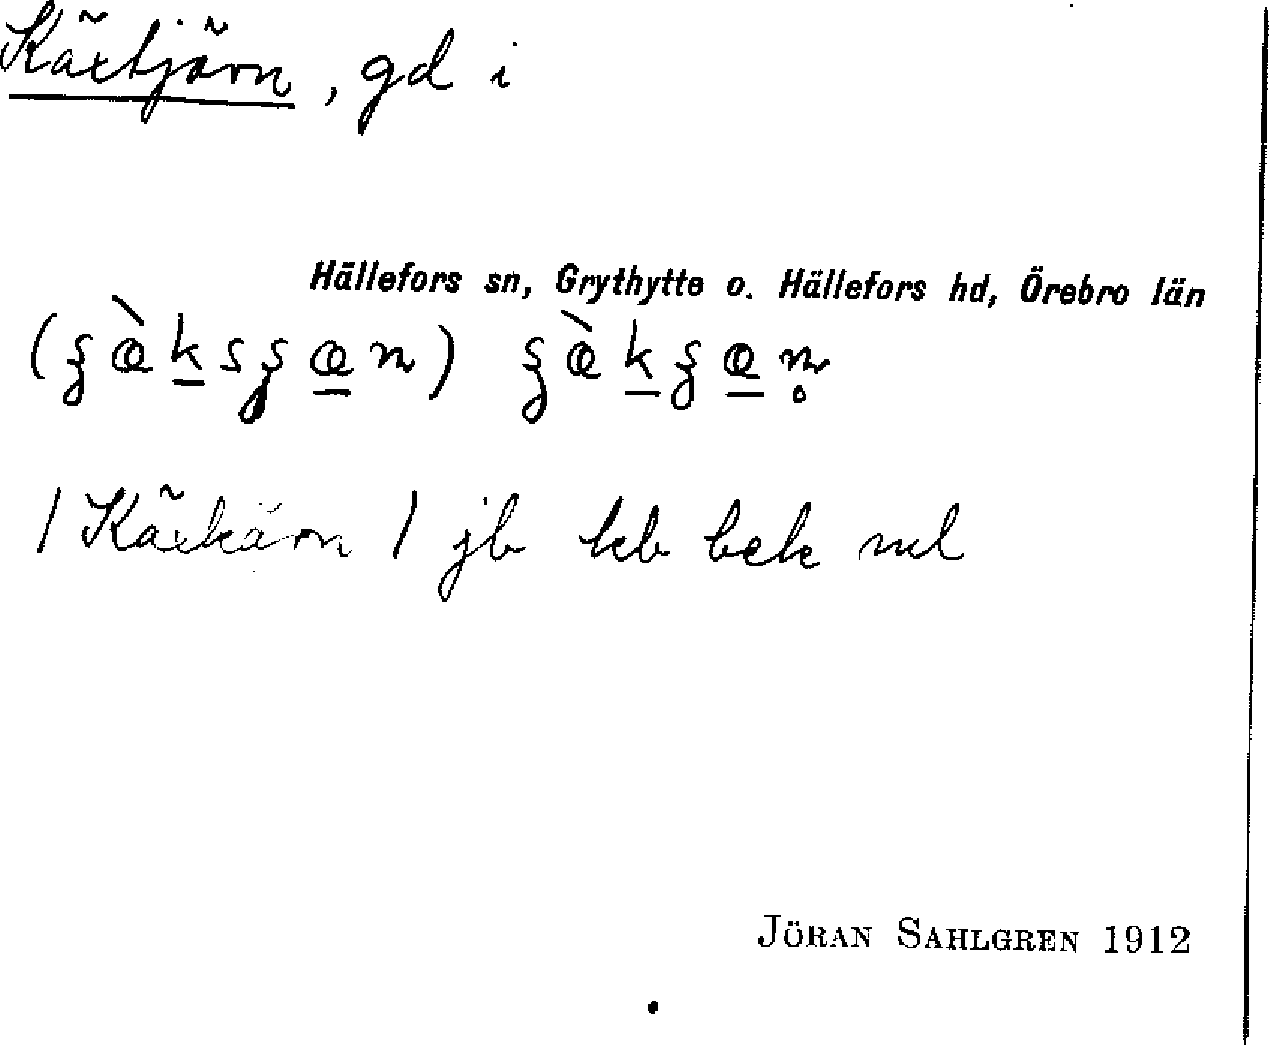 Käxtjärn, gd i
Hällefors sn, Grythytte o. Hällefors hd, Örebro län
/ Käxkärn / jb kb bek
JÖRAN SAHLGREN 1912